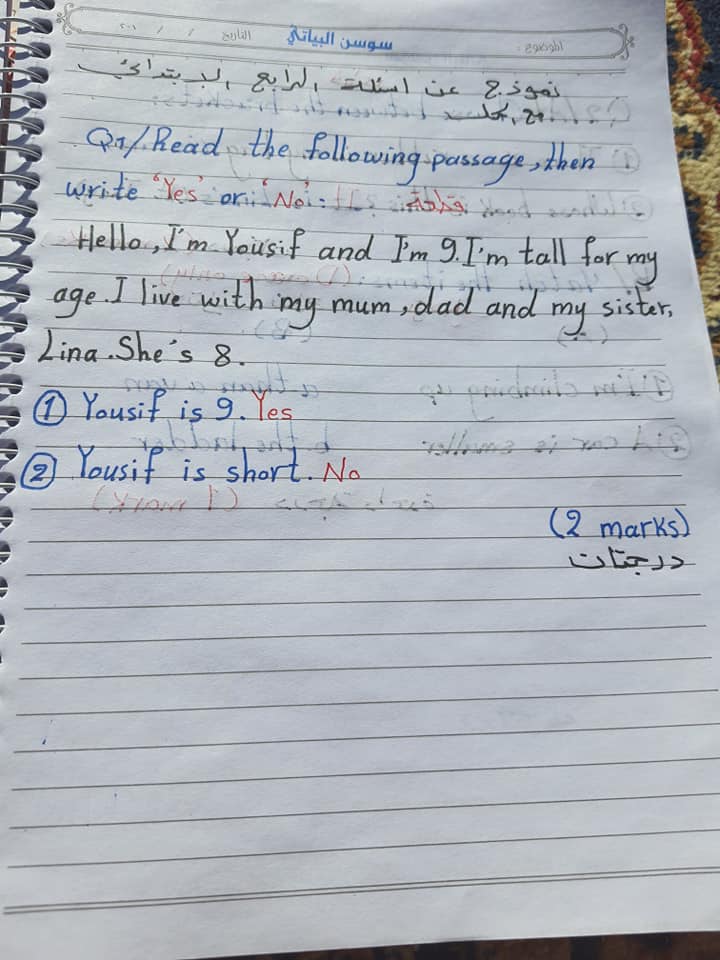 الموضوع: سوسن البياتي التاريخ / / ٢٠١
نموذج عن اسئلة الرابع الابتدائي
Q1/Read the following passage, then
write 'Yes' or 'No': قطعة
Hello, I'm Yousif and I'm 9. I'm tall for my
age. I live with my mum, dad and my sister,
Lina. She's 8.
① Yousif is 9. Yes
② Yousif is short. No
(2 marks)
درجتان